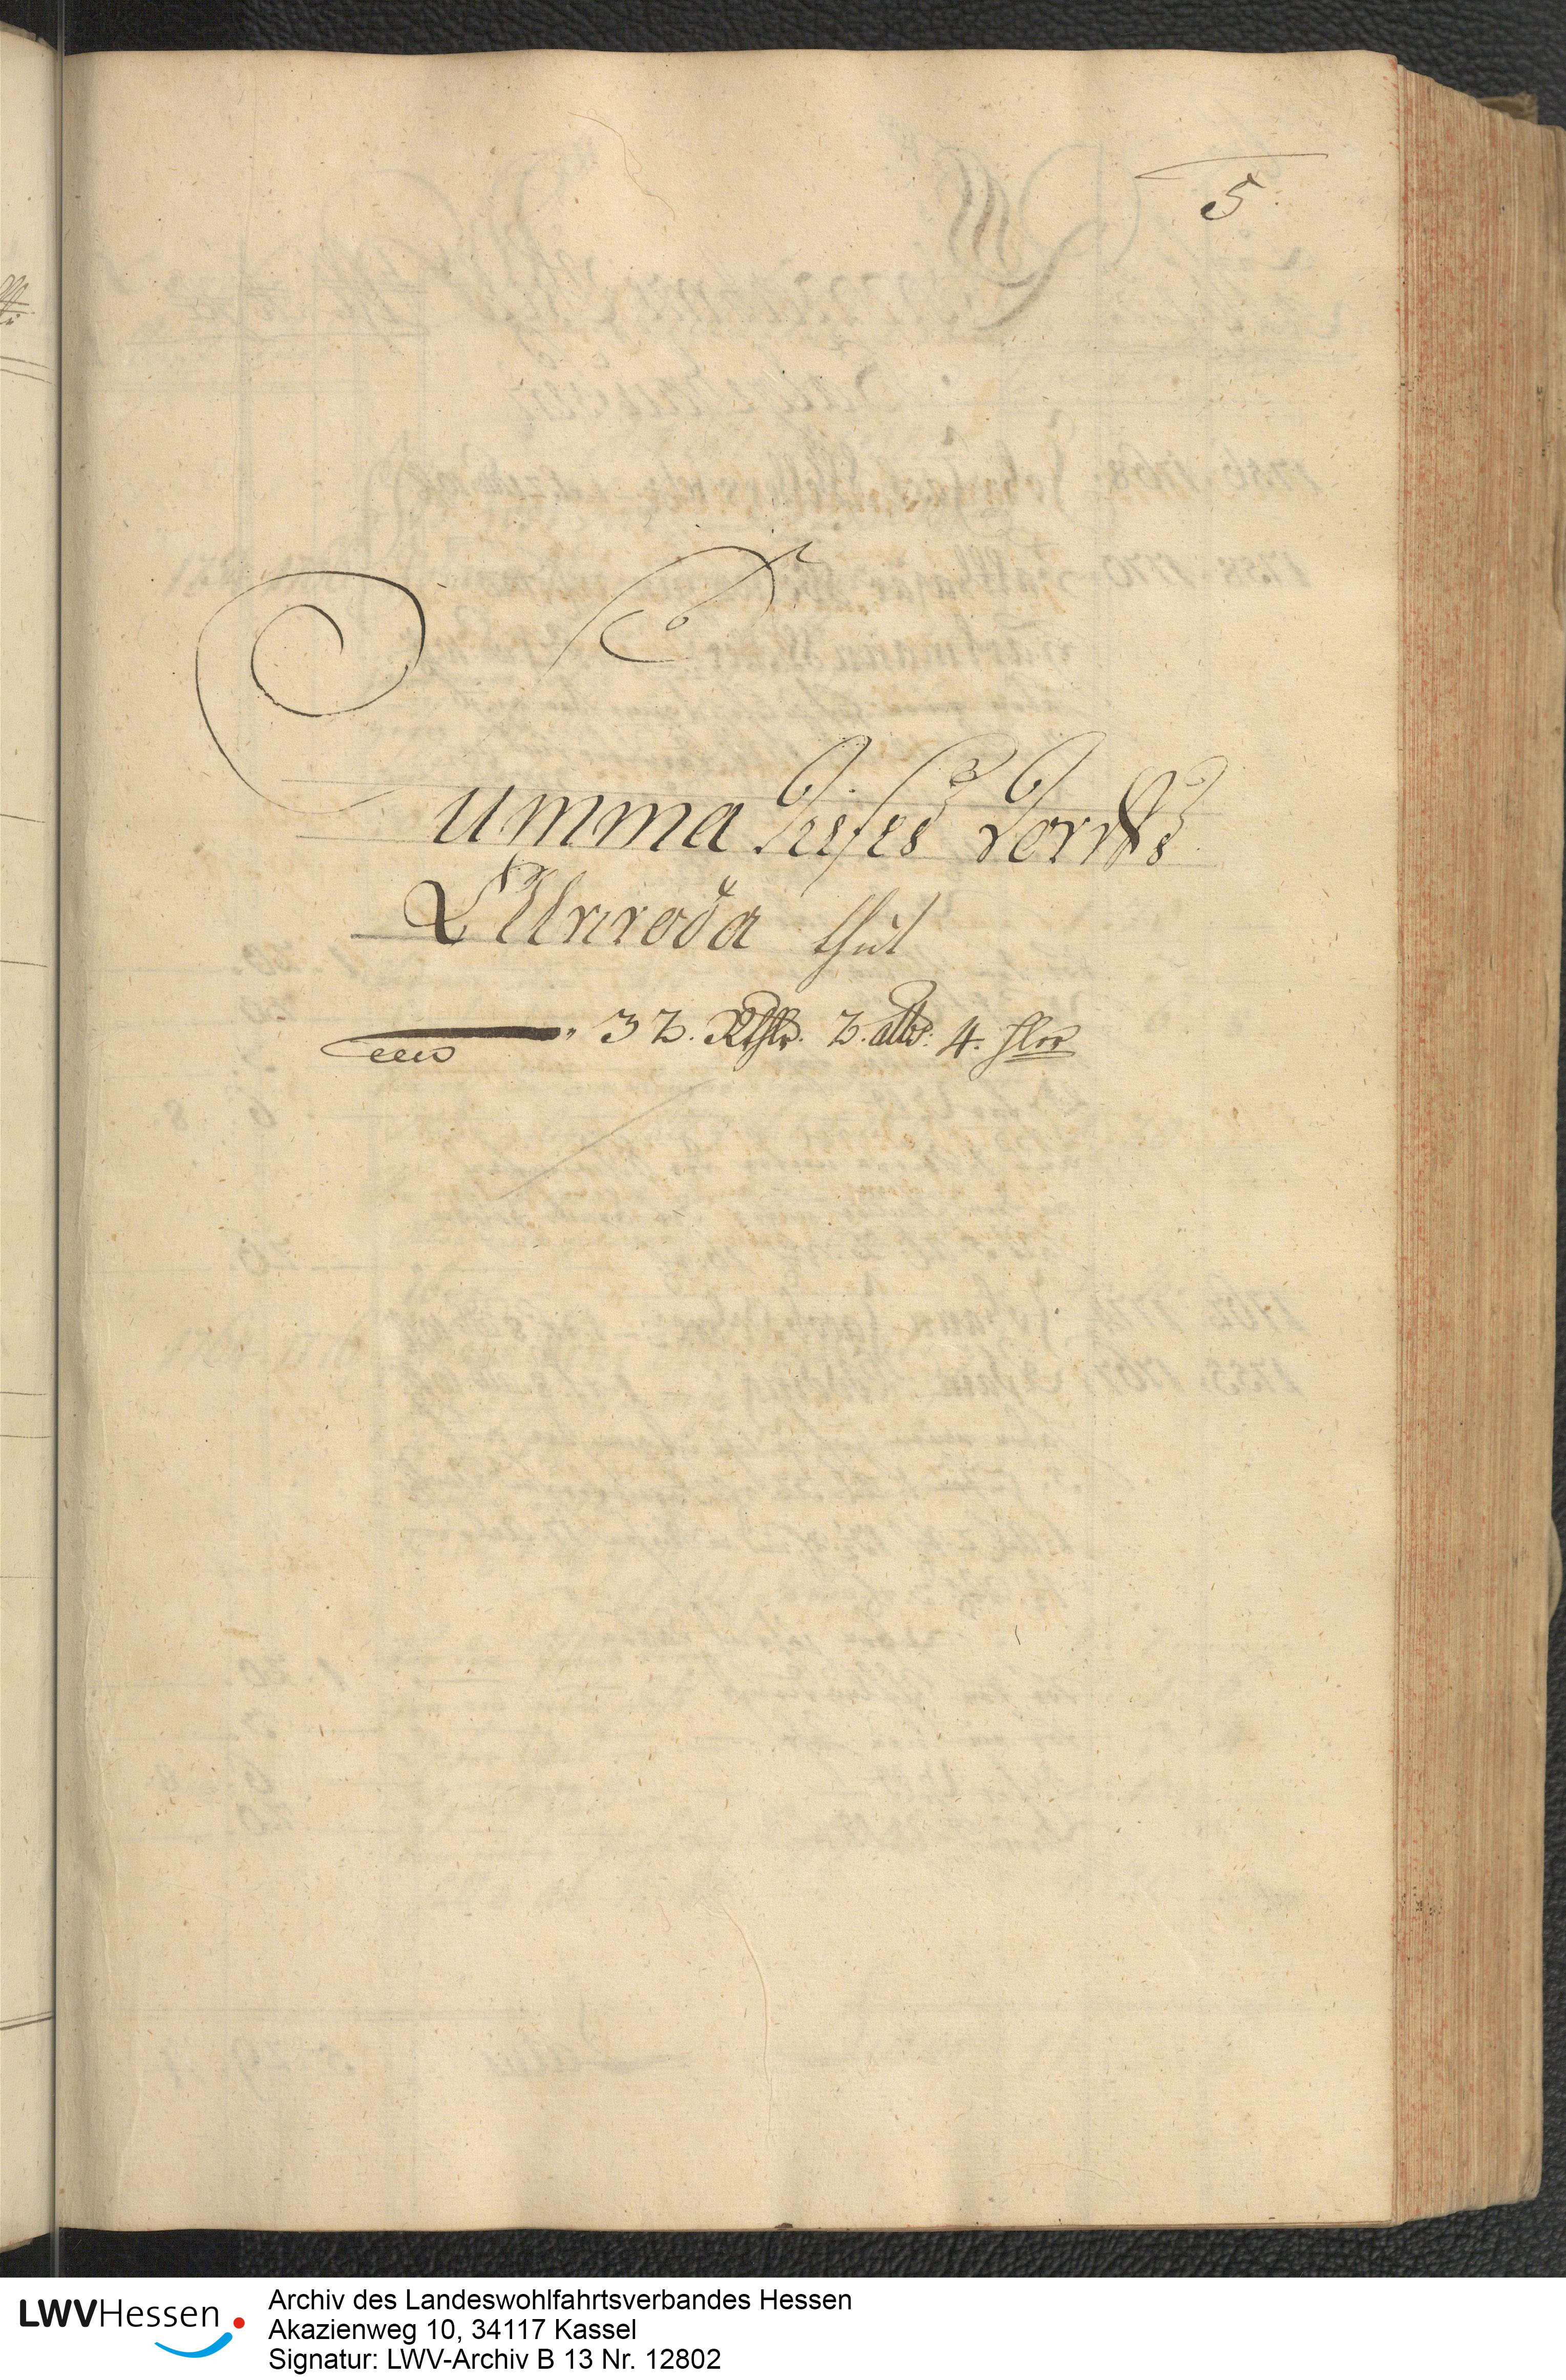 5
Summa dieses Dorffs
Ellnroda thut
32. Rthlr. 2. albs: 4. hlr
LWVHessen
Archiv des Landeswohlfahrtsverbandes Hessen
Akazienweg 10, 34117 Kassel
Signatur: LWV-Archiv B 13 Nr. 12802